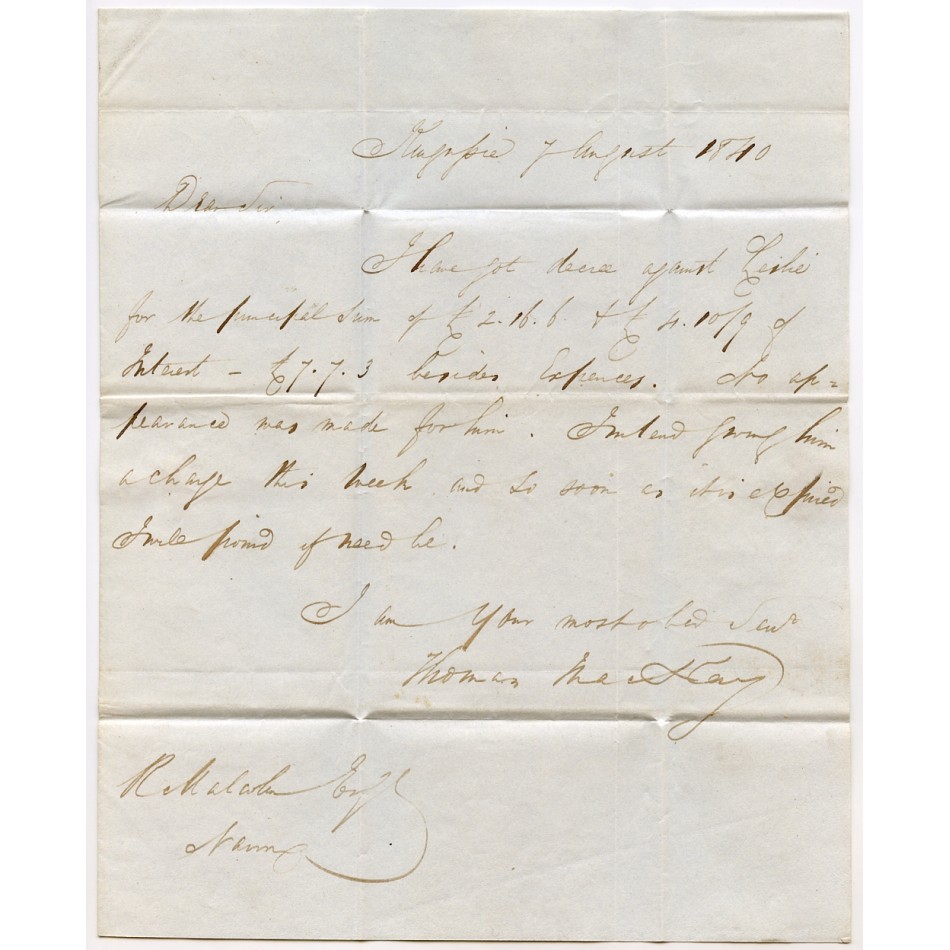 Kingussie 7 August 1840
Dear Sir,
I have got decree against Leslie
for the principal Sum of £2.16.6 & £4.10/9 of
Interest - £7.7.3 besides Expences. No ap=
pearance was made for him. I intend giving him
a charge this week and so soon as it is expired
I will poind if need be.
I am Your most obed Servt
Thomas MacKay
R Malcolm Esqr
Nairn